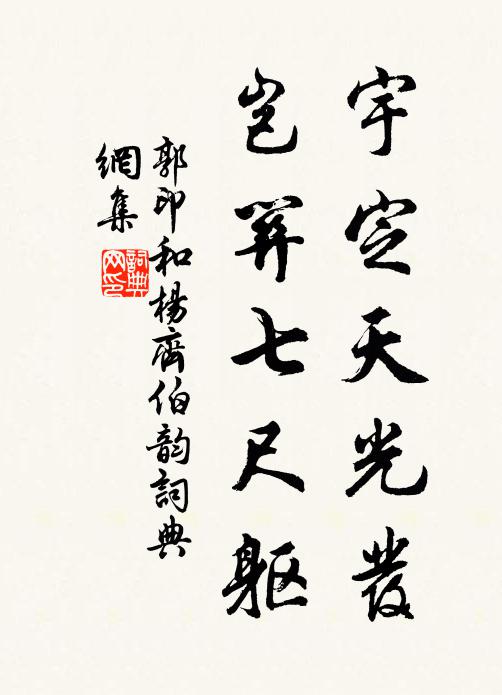 宇定天光發
豈七尺軀
郭印和楊齊伯韻詞典
網集
詞典
网印